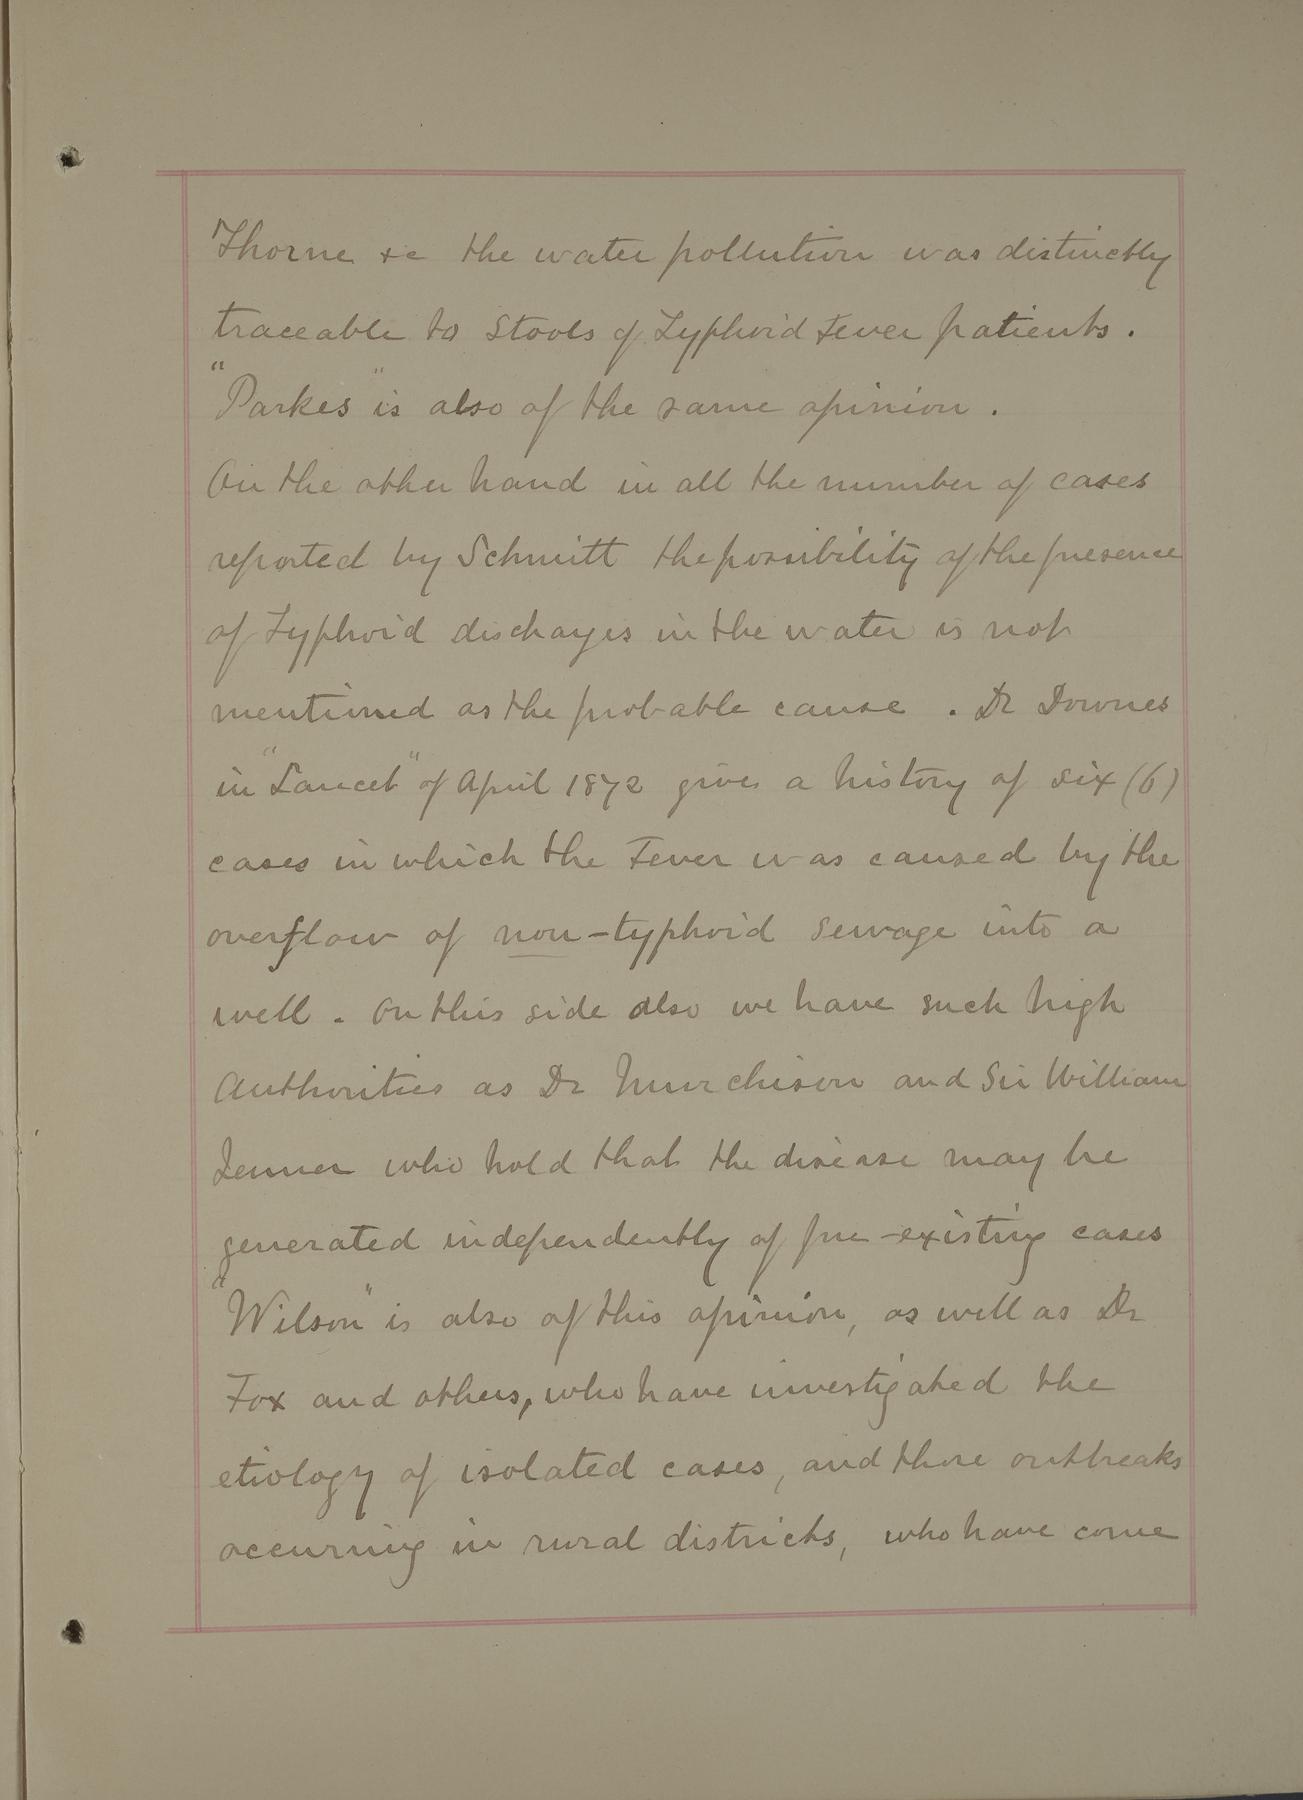 Thorne &c the water pollution was distinctly
traceable to Stools of Typhoid Fever patients.
"Parkes" is also of the same opinion.
On the other hand in all the number of cases
reported by Schmitt the possibility of the presence
of Typhoid discharges in the water is not
mentioned as the probable cause. Dr Downes
in "Lancet" of April 1872 gives a history of six (6)
cases in which the Fever was caused by the
overflow of non-typhoid sewage into a
well. On this side also we have such high
Authorities as Dr Murchison and Sir William
Jenner who hold that the disease may be
generated independently of pre-existing cases
"Wilson" is also of this opinion, as well as Dr
Fox and others, who have investigated the
etiology of isolated cases, and those outbreaks
occurring in rural districts, who have come